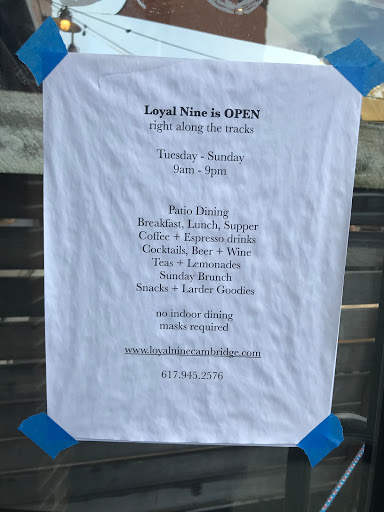 Loyal Nine is OPEN
right along the tracks
Tuesday - Sunday
9am - 9pm
Patio Dining
Breakfast, Lunch, Supper
Coffee + Espresso drinks
Cocktails, Beer + Wine
Teas + Lemonades
Sunday Brunch
Snacks + Larder Goodies
no indoor dining
masks required
www.loyalninecambridge.com
617.945.2576